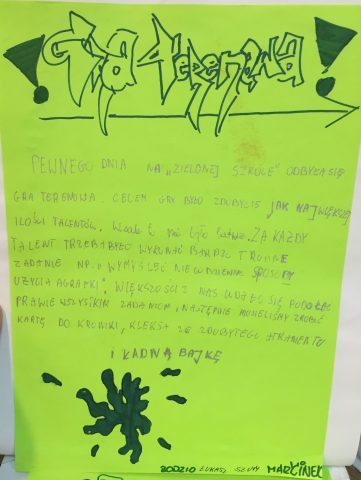 Gra Terenowa!
PEWNEGO DNIA NA „ZIELONEJ SZKOLE" ODBYŁA SIĘ
GRA TERENOWA. CELEM GRY BYŁO ZDOBYCIE JAK NAJWIĘKSZEJ
ILOŚCI TALENTÓW. Wcale to nie było łatwe. ZA KAŻDY
TALENT TRZEBA BYŁO WYKONAĆ BARDZO TRUDNE
ZADANIE NP. „WYMYŚLEĆ NIECODZIENNE SPOSOBY
UŻYCIA AGRAFKI". WIĘKSZOŚCI Z NAS UDAŁO SIĘ PODOŁAĆ
PRAWIE WSZYSTKIM ZADANIOM, NASTĘPNIE MUSIELIŚMY ZROBIĆ
KARTĘ DO KRONIKI, KLEKSA ZE ZDOBYTEGO ATRAMENTU
I ŁADNĄ BAJKĘ
BODZIO ŁUKASZ SZUMY MARCINEK